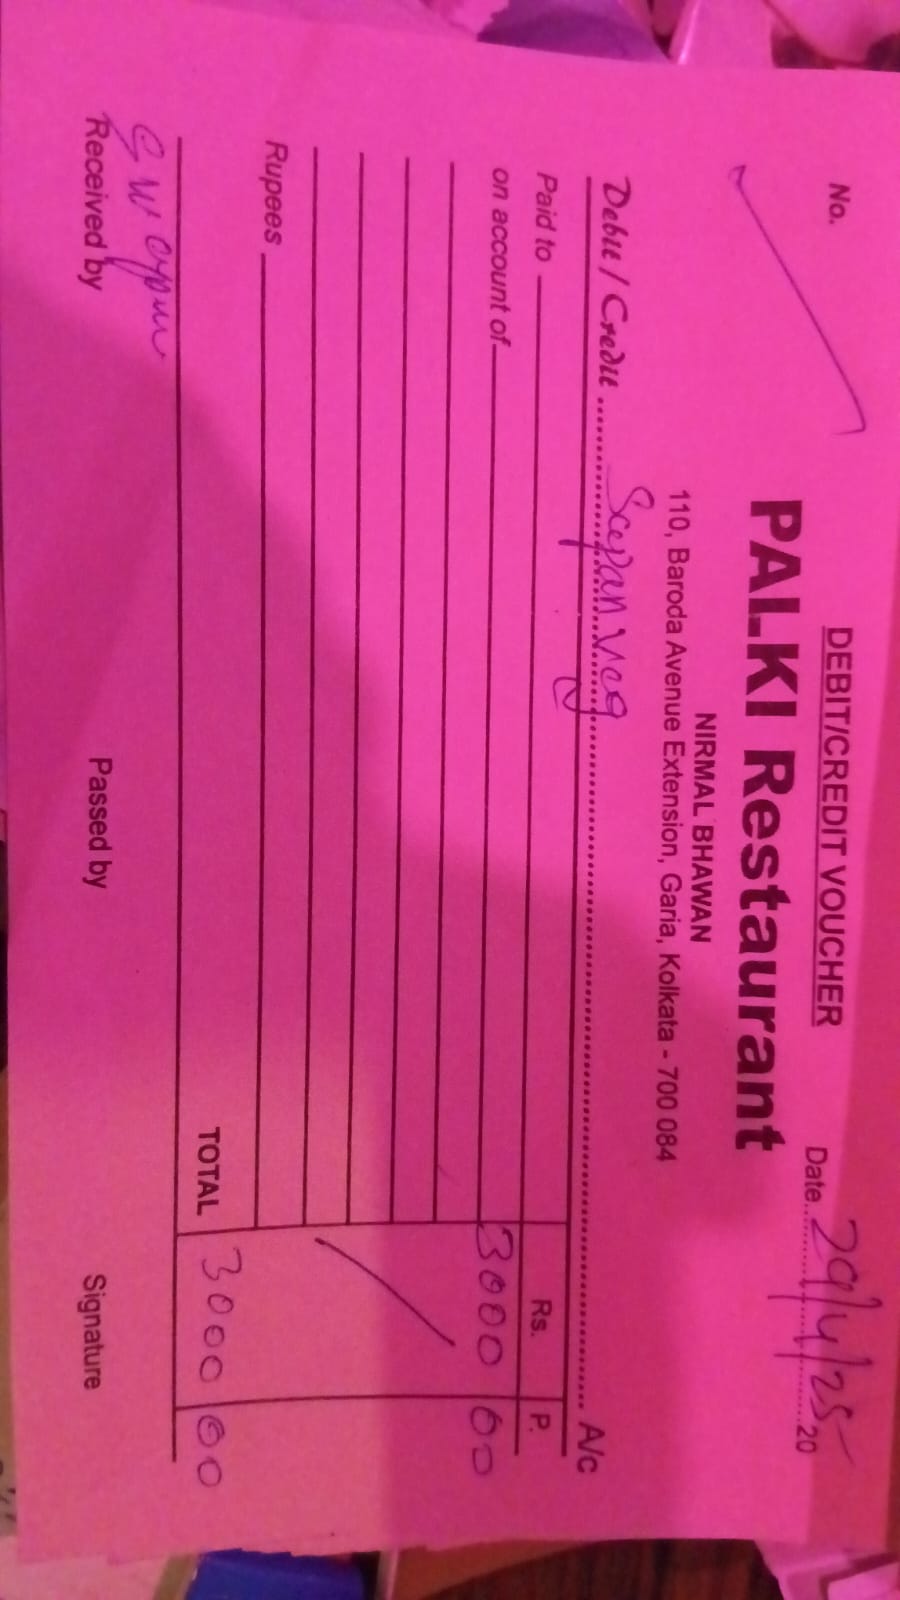 DEBIT/CREDIT VOUCHER
No. Date 29/4/25 20
PALKI Restaurant
NIRMAL BHAWAN
110, Baroda Avenue Extension, Garia, Kolkata - 700 084
Debit / Credit Veg A/c
Paid to Rs. P.
on account of 3000 00
Rupees
TOTAL 3000 00
Received by Passed by Signature